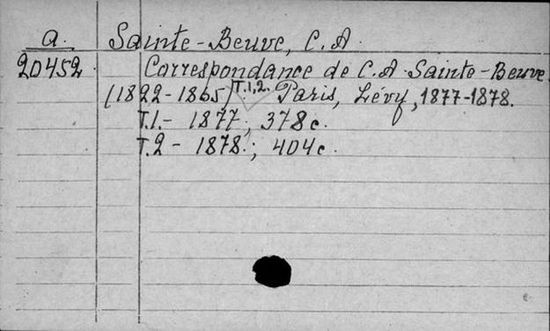 a. Sainte-Beuve, C.A.
20452 Correspondance de C.A. Sainte-Beuve
(1822-1865) T.1,2. Paris, Lévy, 1877-1878.
T.1.- 1877.; 378c.
T.2 - 1878.; 404c.